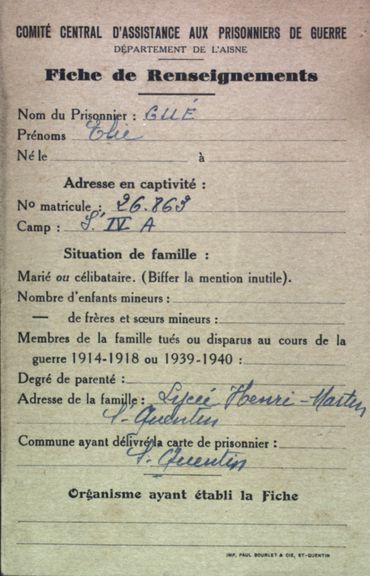 COMITÉ CENTRAL D'ASSISTANCE AUX PRISONNIERS DE GUERRE
DÉPARTEMENT DE L'AISNE
Fiche de Renseignements
Nom du Prisonnier : GUÉ
Prénoms Elie
Né le à
Adresse en captivité :
No matricule : 26.863
Camp : S. IV A
Situation de famille :
Marié ou célibataire. (Biffer la mention inutile).
Nombre d'enfants mineurs :
— de frères et sœurs mineurs :
Membres de la famille tués ou disparus au cours de la
guerre 1914-1918 ou 1939-1940 :
Degré de parenté :
Adresse de la famille : Lycée Henri-Martin
St Quentin
Commune ayant délivré la carte de prisonnier :
St Quentin
Organisme ayant établi la Fiche
IMP. PAUL BOURLET & CIE, ST-QUENTIN